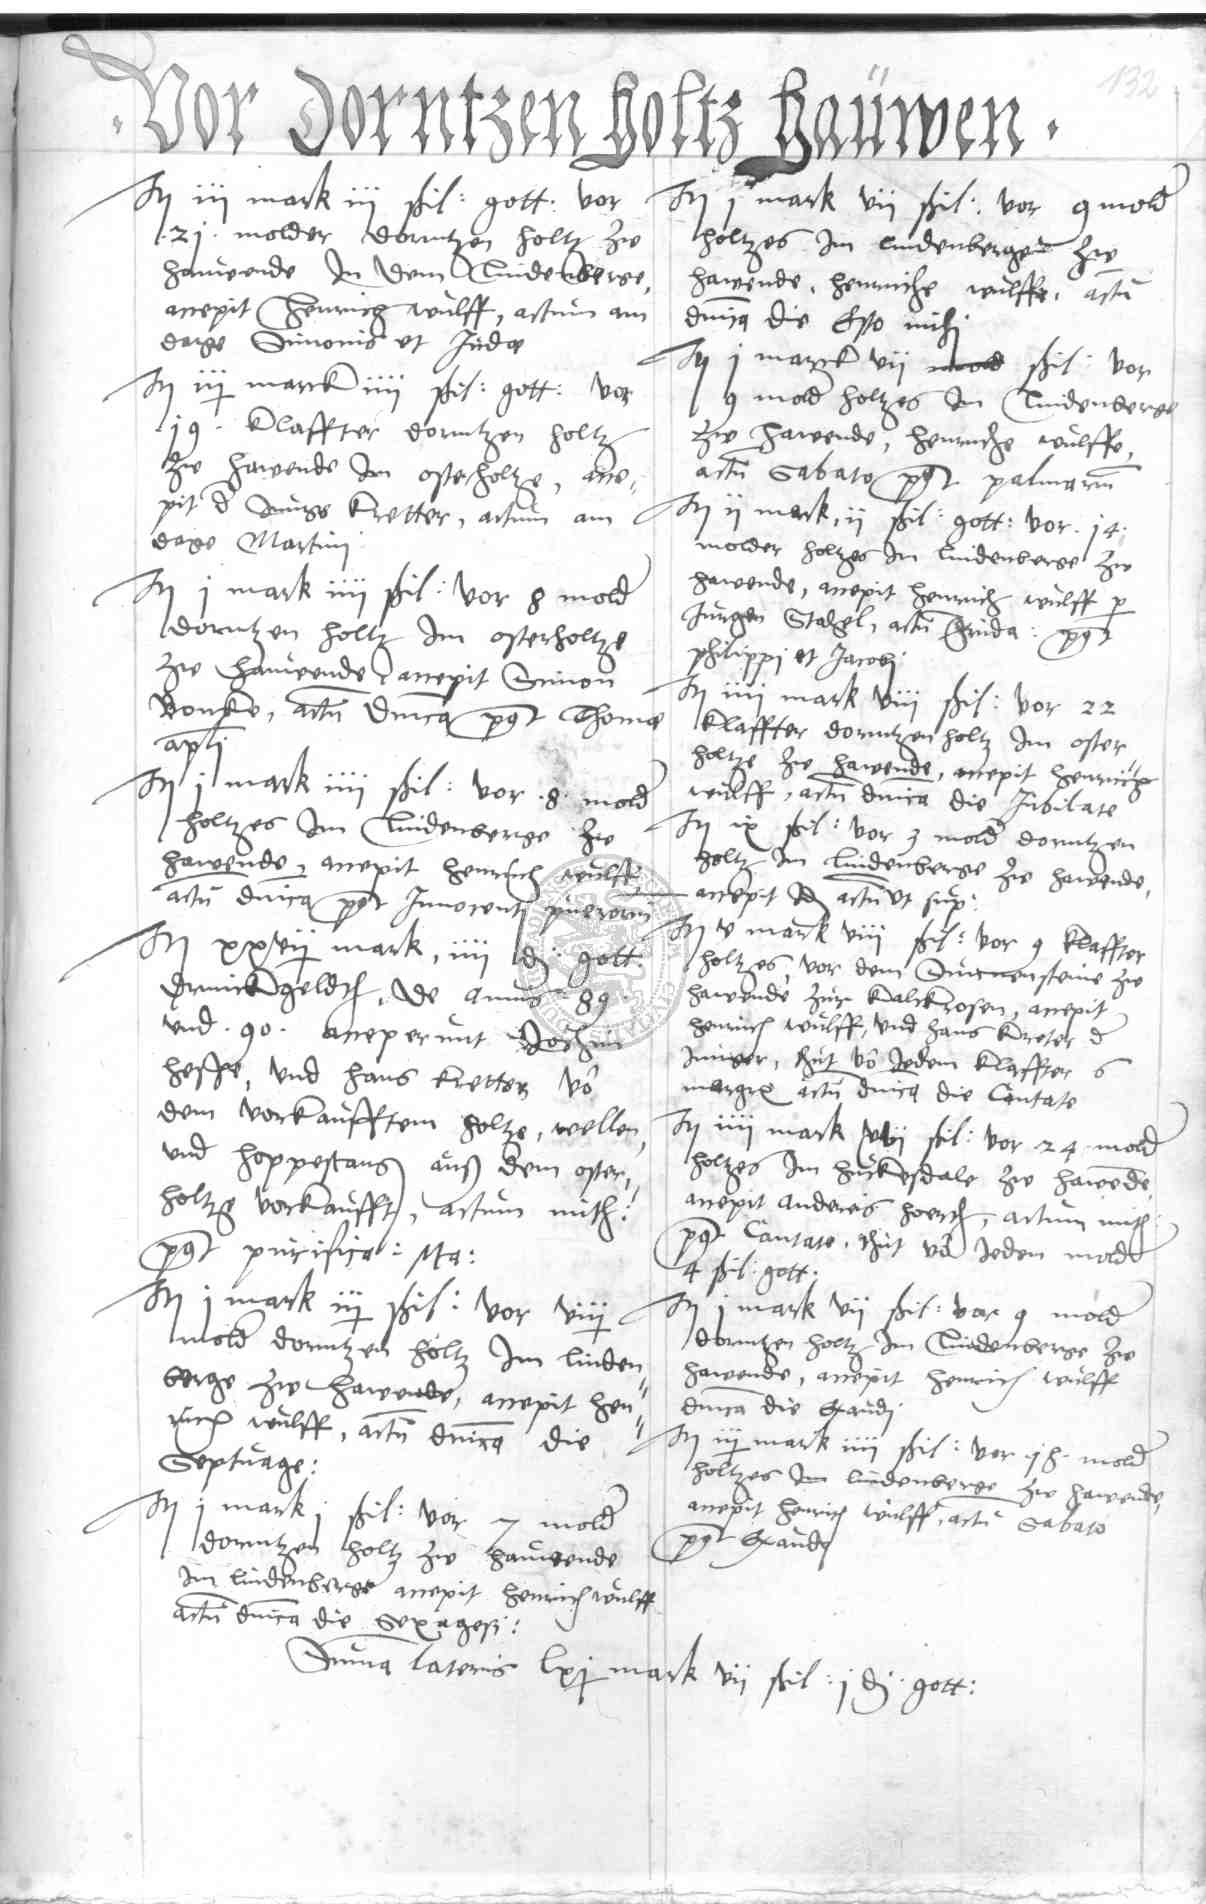 132
Vor Dorntzen holtz haüwen.
It iii mark iii ßil: gott: vor
21. molder dorntzen holtz zw
hauwende In dem Lindenberge,
accepit Henrich wulff, actum am
dage Simonis et Judae
It iij marck iiii ßil: gott: vor
19. Klaffter dorntzen holtz
zw hawende Im osterholtze, acce=
pit d Junge Kretter, actum am
dage Martini
It j mark iiii ßil: vor 8 mold
dorntzen holtz Im osterholtze
zw hauwende, accepit Simon
actu dnica post Thomae
apli
It j mark iiii ßil: vor .8. mold
holtzes Im Lindenberge zw
hawende, accepit henrich wulff
actu dnica post Innocenti puerorum
It xxvij mark, iiii d: gott
drinckgeldes, de Anno 89.
vnd .90. acceperunt Jochim
hesse, vnd hans Kretter vo
dem vorkaufftem holtze, wellen,
vnd hoppestang auß dem oster,
holtze vorkaufft, actum mith:
post purifica: Ma:
It j mark iij ßil: vor viij
mold dorntzen holtz Im linden
berge zw hawende, accepit hen=
rich wulff, actu dnica die
Septuage:
It j mark j ßil: vor 7 mold
dorntzen holtz zw hauwende
Im lindenberge accepit henrich wulff
actu dnica die Sexagesi:
It j mark vii ßil: vor 9 mold
holtzes Im lindenberge zw
hawende, henriche wulffe, actu
dnica die Esto mihi
It j marck vii mold ßil: vor
9 mold holtzes Im Lindenberge
zw hawende, henriche wulffe,
actu Sabato post palmarum
It ii mark, ii ßil: gott: vor .14.
molder holtzes Im lindenberge zw
hawende, accepit henrich wulff p
Jurgen Stahel, actu post
philippi et Jacobi
It iiii mark viii ßil: vor 22
Klaffter dorntzen holtz Im oster
holtze zw hawende, accepit henrich
wulff, actu dnica die Jubilate
It ix ßil: vor 3 mold dorntzen
holtz Im lindenberge zw hawende,
accepit Id actu vt sup:
It v mark viii ßil: vor 9 Klaffter
holtzes, vor dem zw
hawende zur Kalckrosen, accepit
henrich wulff, vnd hans Kreter d
Junger, thut vo Jedem Klaffter 6
margr actu dnica die Cantate
It iiii mark vii ßil: vor .24. mold
holtzes Im zw hawende,
accepit Andereis actum mith:
post Cantate, thut vo Jeden mold
4 ßil: gott:
It j mark vii ßil: vor 9 mold
dorntzen holtz Im Lindenberge zw
hawende, accepit henrich wulff
dnica die Exaudi
It iij mark iiii ßil: vor .18. mold
holtzes Im lindenberge zw hawende,
accepit henrich wulff, actu Sabato
post Exaudi
Suma lateris lxj mark vii ßil: j d: gott: